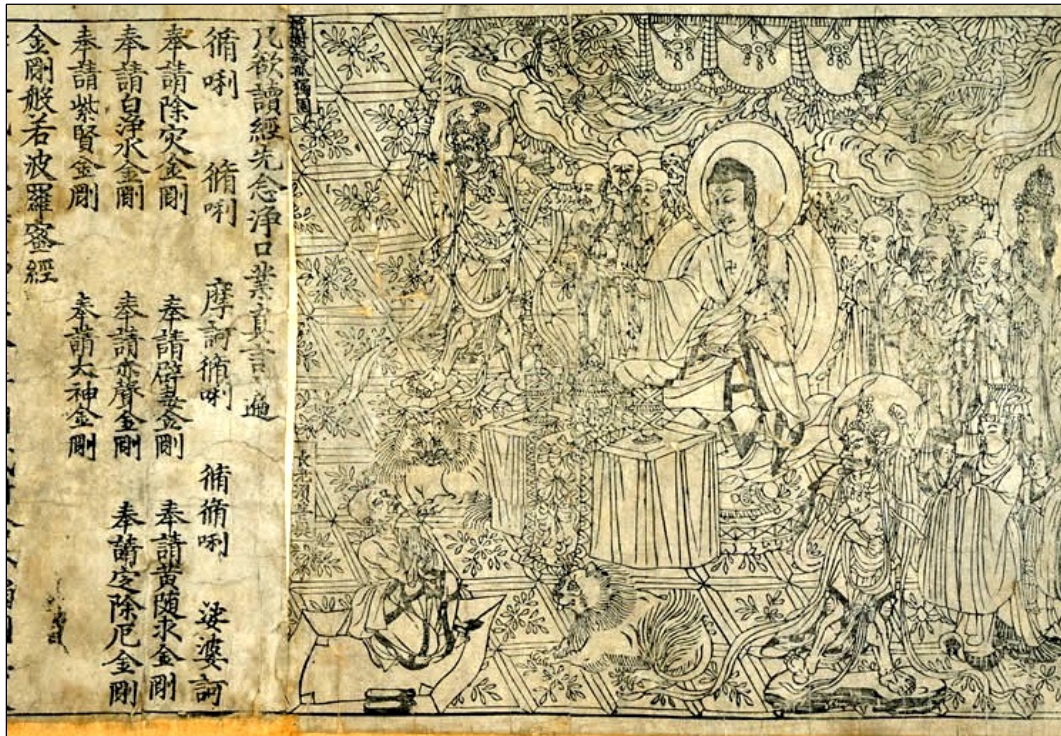 祇樹給孤獨園
長老須菩提
凡欲讀經先念淨口業真言 遍
脩唎 脩唎 摩訶脩唎 脩脩唎 娑婆訶
奉請除灾金剛 奉請辟毒金剛 奉請黃随求金剛
奉請白淨水金剛 奉請赤聲金剛 奉請定除厄金剛
奉請紫賢金剛 奉請大神金剛
金剛般若波羅蜜經